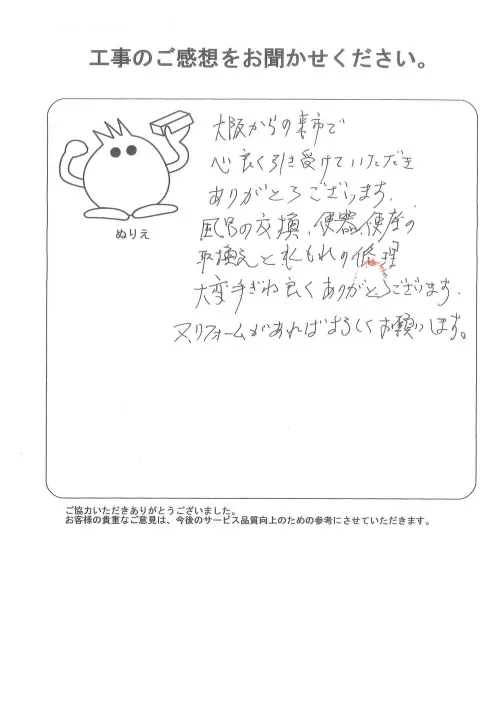 工事のご感想をお聞かせください。
大阪からの来市で
心良く引き受けていただき
ありがとうございます.
風呂の交換、便器、便座の
取換えと水もれの修理
大変手ぎわ良くありがとうございます.
又、リフォームがあればよろしくお願いします。
ぬりえ
ご協力いただきありがとうございました。
お客様の貴重なご意見は、今後のサービス品質向上のための参考にさせていただきます。